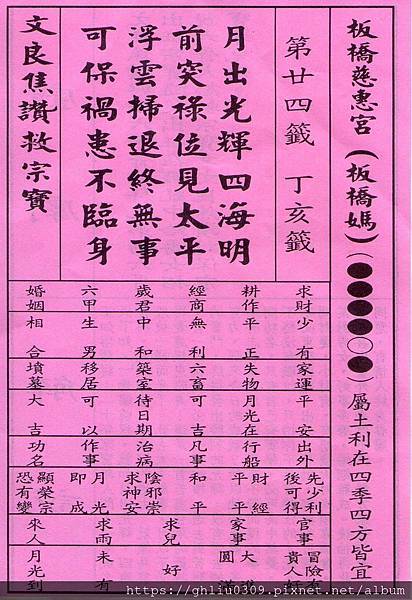 板橋慈惠宮(板橋媽)(●●●●○●)屬土利在四季四方皆宜
第廿四籤 丁亥籤
月出光輝四海明
前突祿位見太平
浮雲掃退終無事
可保禍患不臨身
文良焦讚救宗寶
求財 少有 家運 平安 出外 先少利後可得 官事 冒險有貴人好
耕作 平正 失物 月光在 行船 平平 家事 大圓
經商 無利 六畜 可吉 凡事 和平 求兒 好
歲君 中和 築室 待日期 治病 陰邪祟求神安
六甲 生男 移居 可以 作事 月光即成 求雨 未有
婚姻 相合 墳墓 大吉 功名 顯榮宗恐有變 來人 月光到
https://ghliu0309.pixnet.net/blog